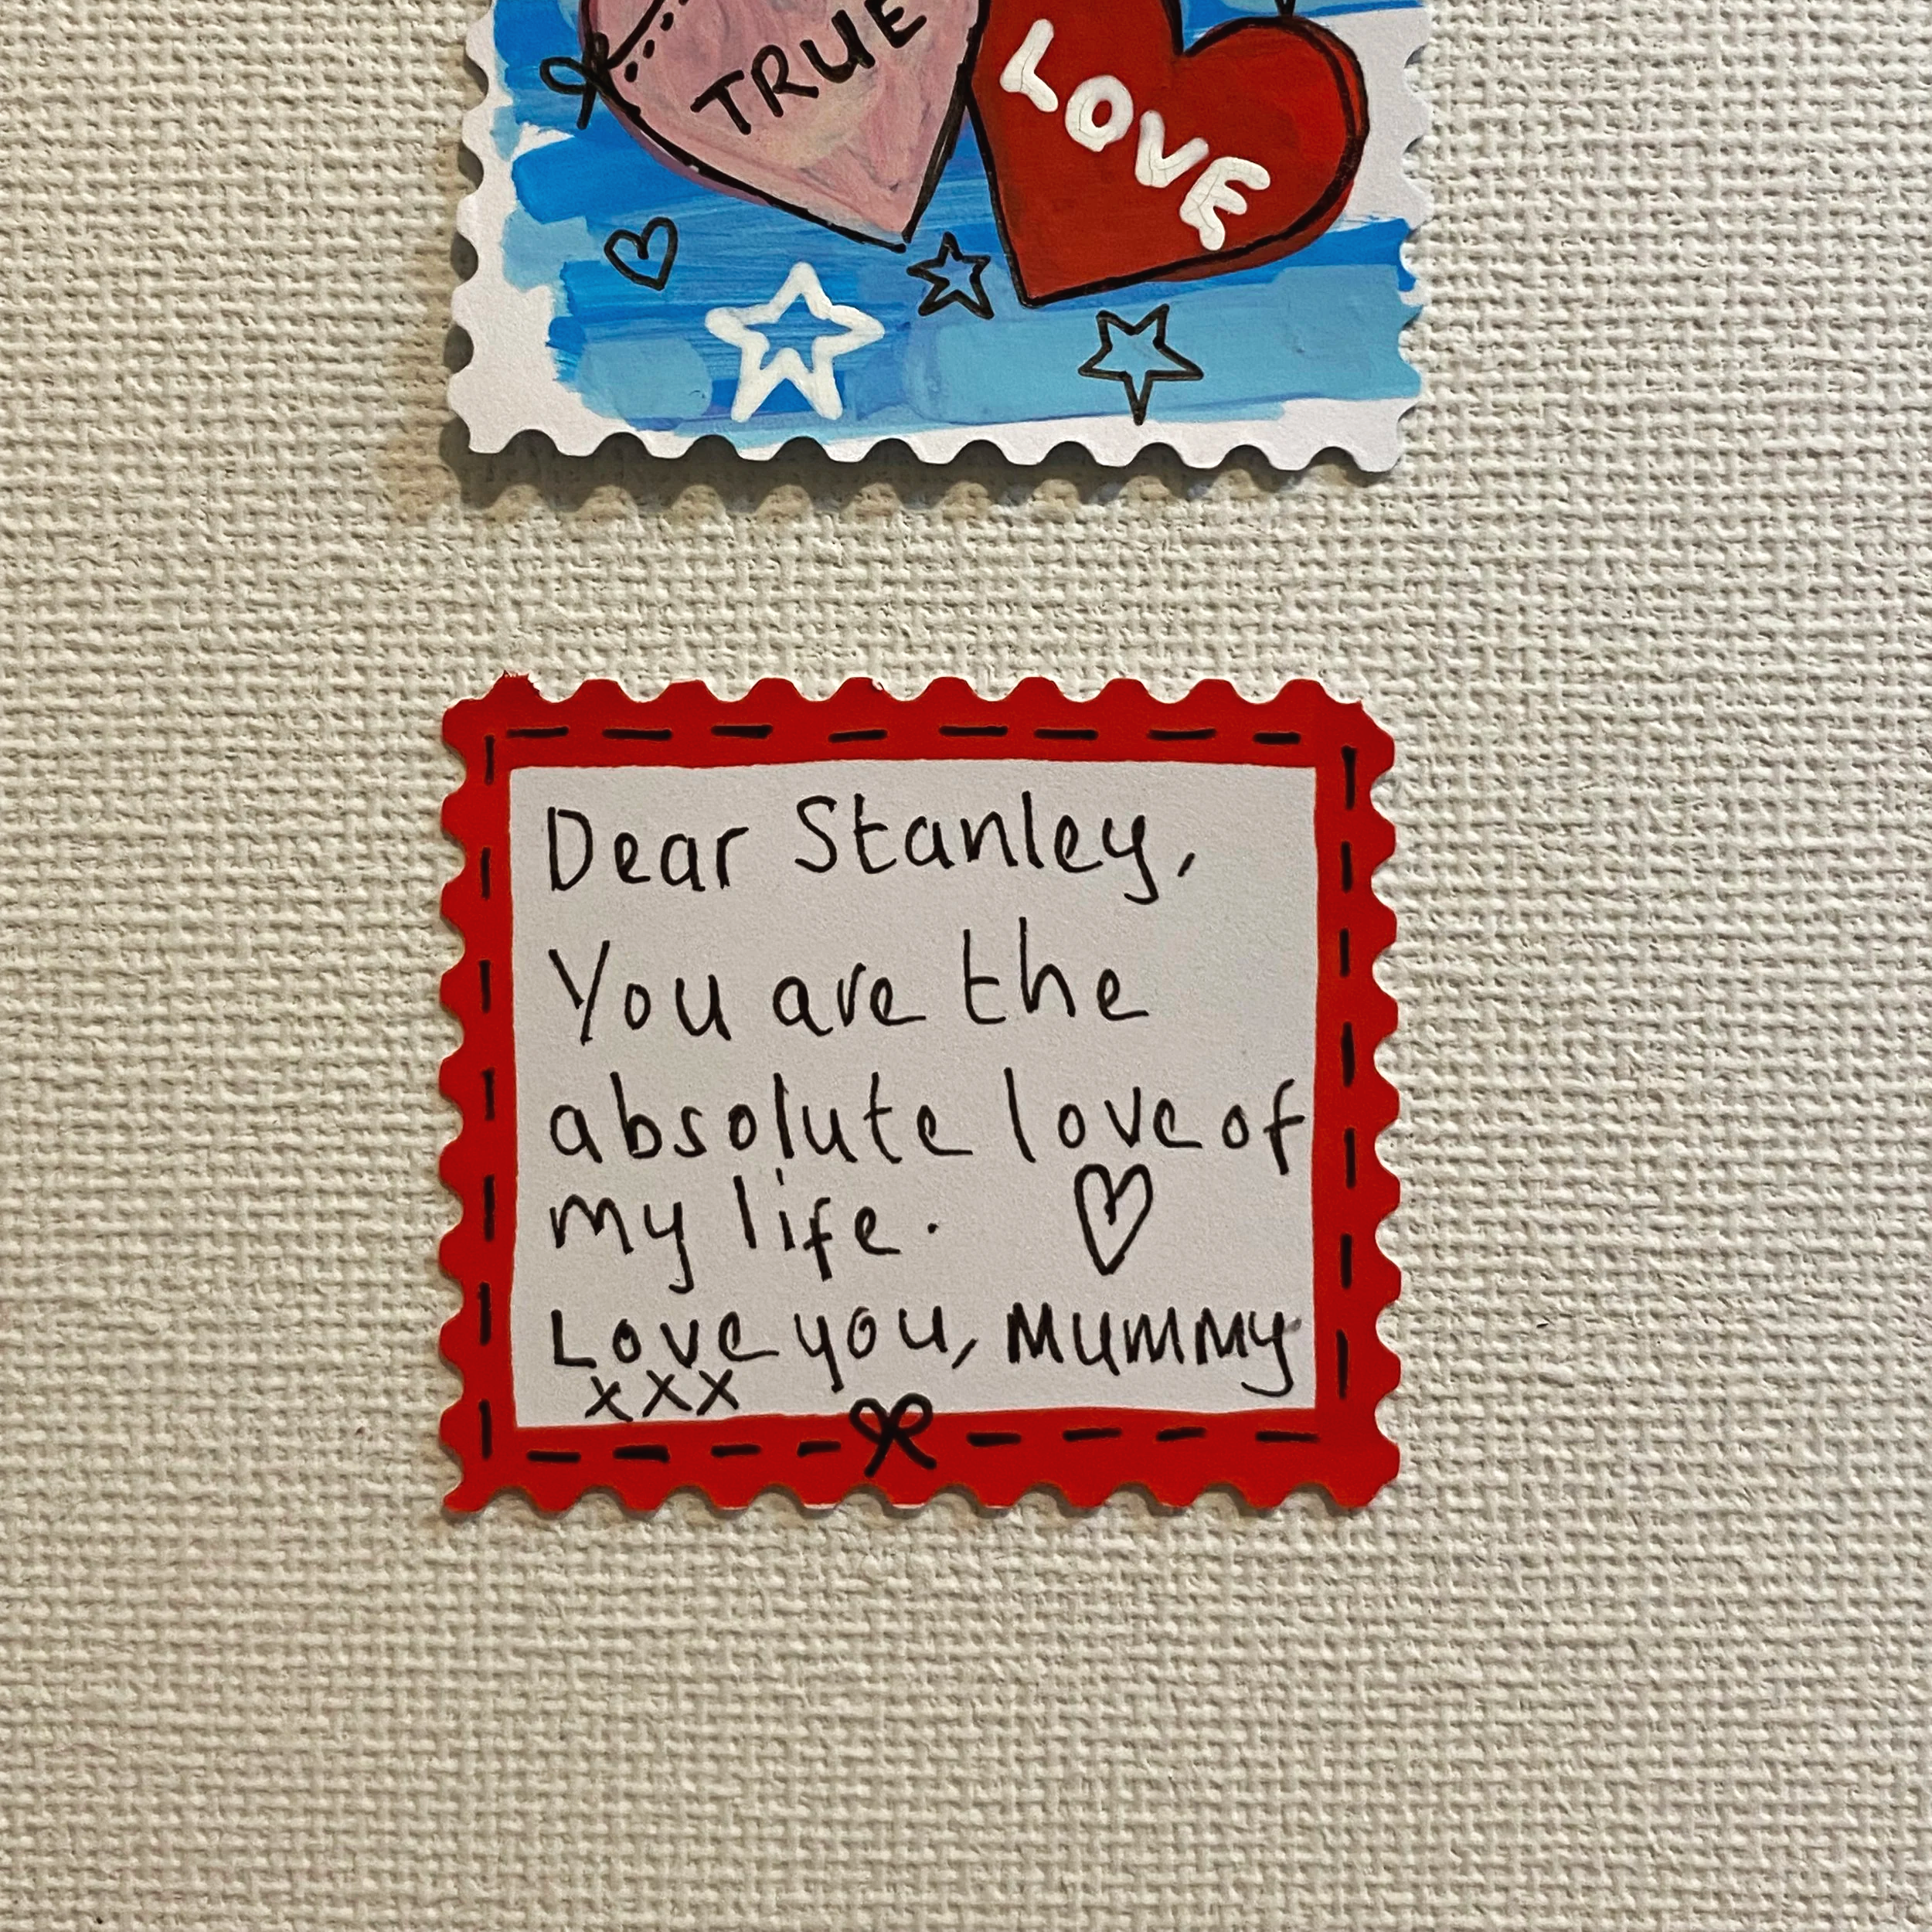 TRUE
LOVE
Dear Stanley,
You are the
absolute love of
my life.
Love you, Mummy
xxx